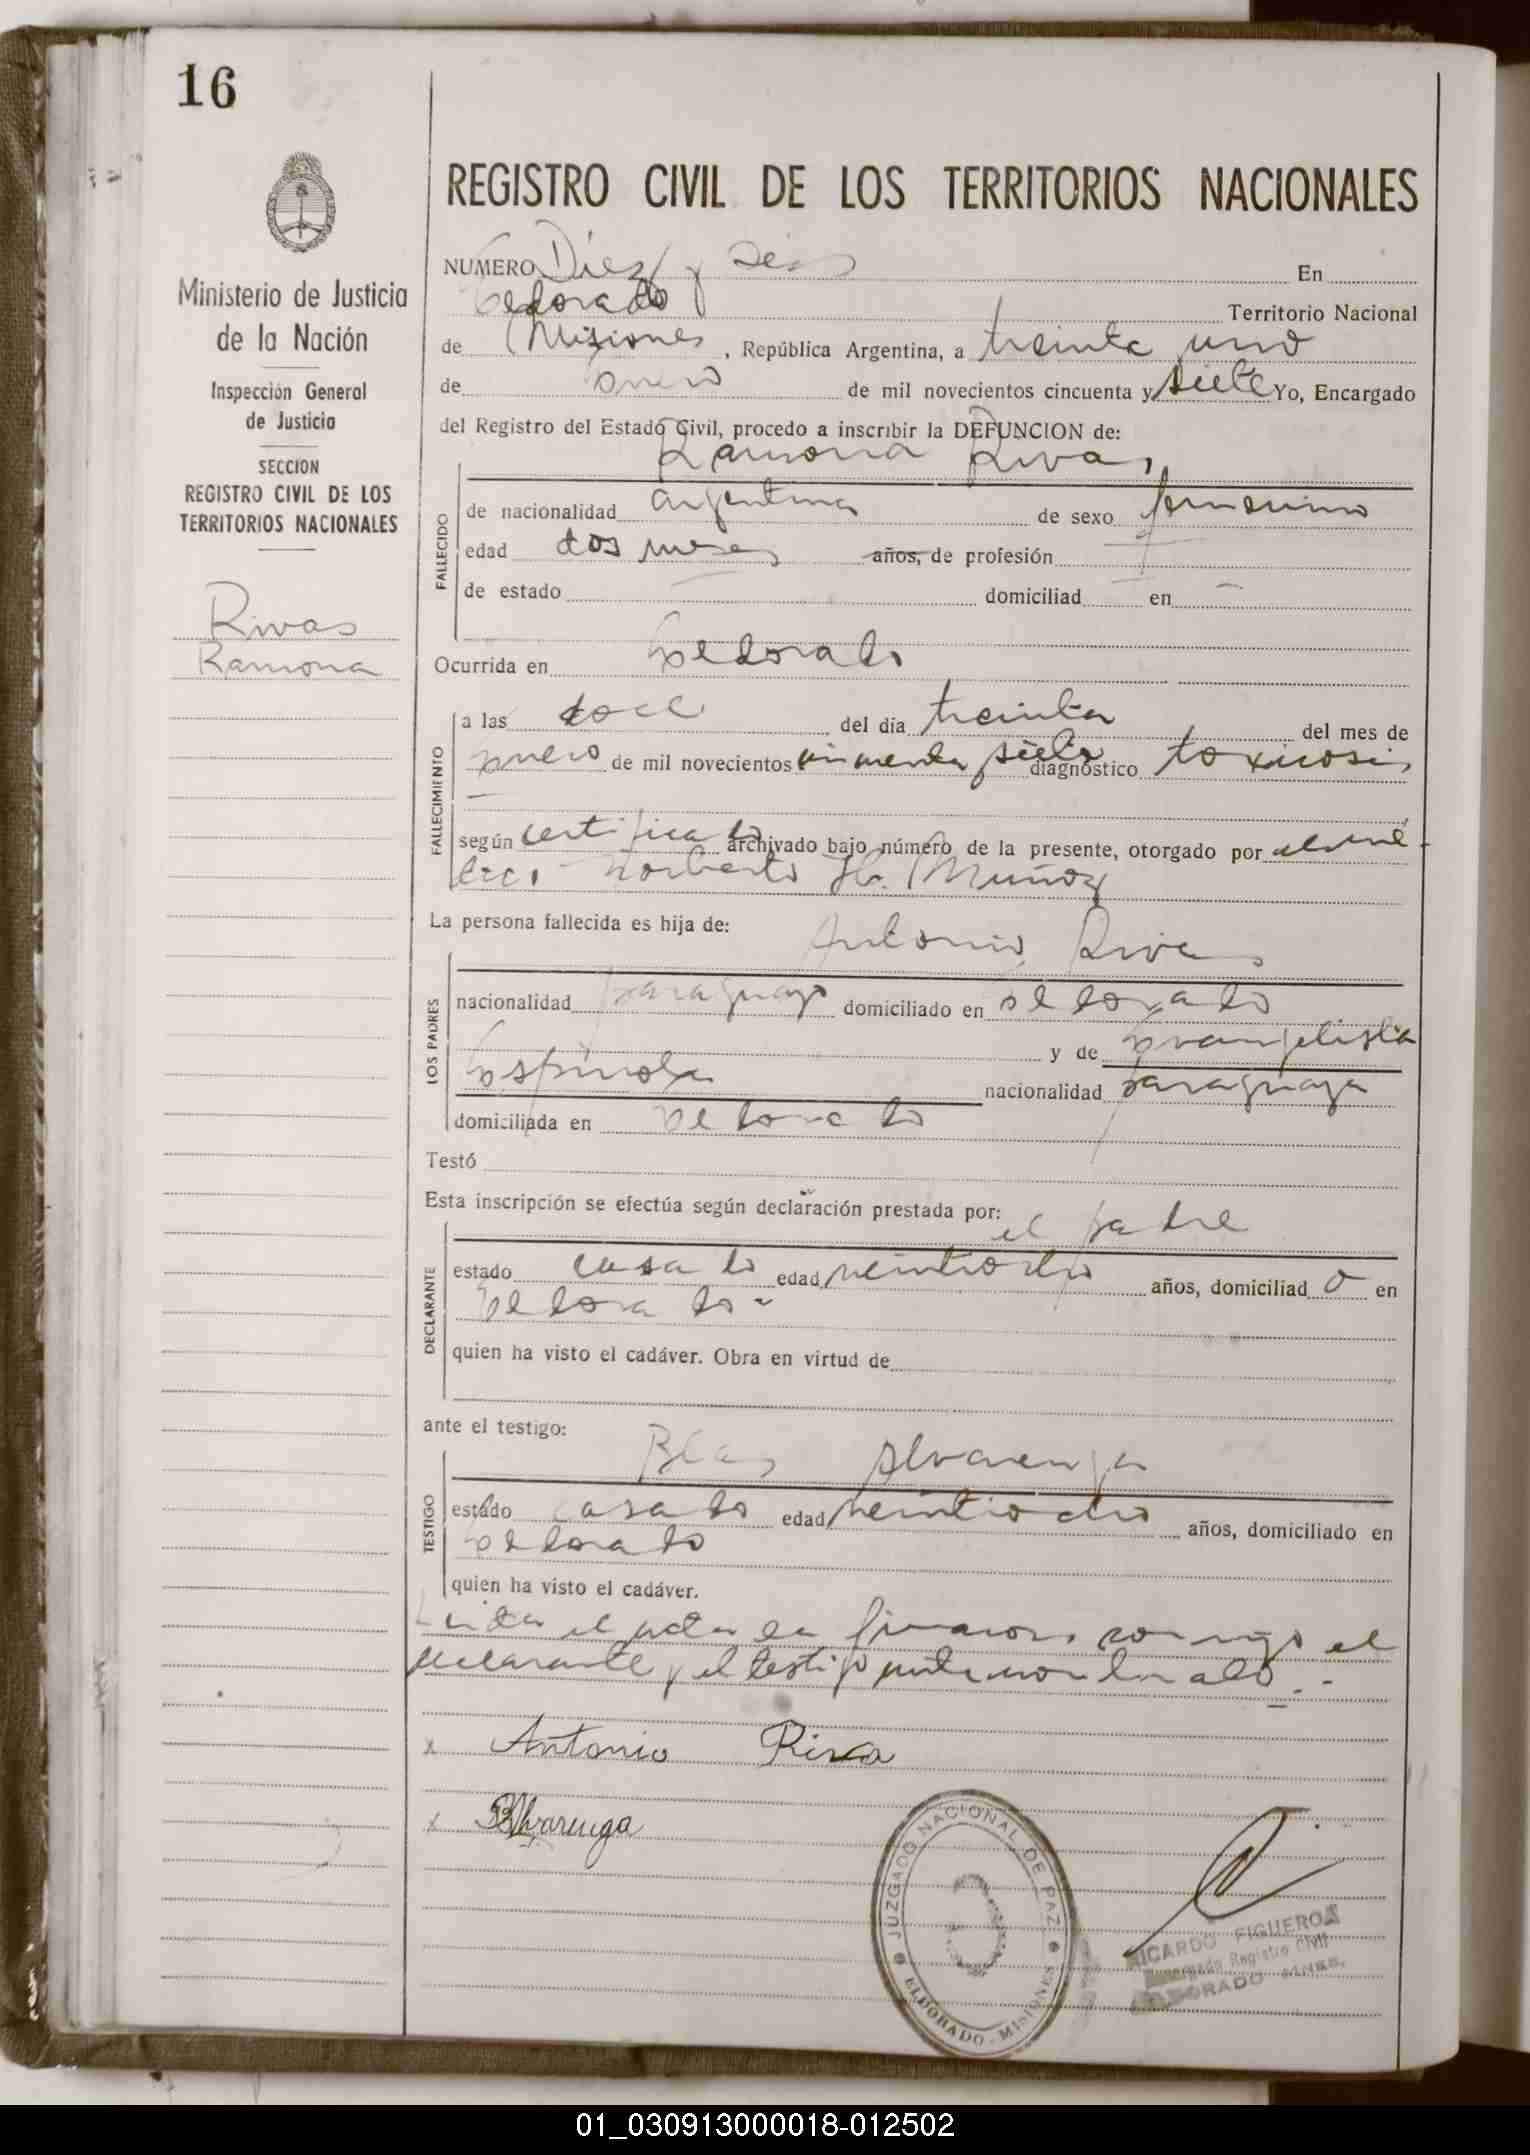 16
Ministerio de Justicia
de la Nación
Inspección General
de Justicia
SECCION
REGISTRO CIVIL DE LOS
TERRITORIOS NACIONALES
Rivas
Ramona
REGISTRO CIVIL DE LOS TERRITORIOS NACIONALES
NUMERO Diez y seis En
Eldorado Territorio Nacional
de Misiones, República Argentina, a treinta uno
de enero de mil novecientos cincuenta y siete Yo, Encargado
del Registro del Estado Civil, procedo a inscribir la DEFUNCION de:
Ramona Rivas
FALLECIDO
de nacionalidad argentina de sexo femenino
edad dos meses años, de profesión
de estado domiciliad en
Ocurrida en Eldorado
FALLECIMIENTO
a las doce del día treinta del mes de
enero de mil novecientos cincuenta siete diagnóstico toxicosis
según certificado archivado bajo número de la presente, otorgado por el mé-
dico Norberto H. Muñoz
La persona fallecida es hija de: Antonio Rivas
LOS PADRES
nacionalidad paraguayo domiciliado en Eldorado
y de Evangelista
Espinola nacionalidad paraguaya
domiciliada en Eldorado
Testó
Esta inscripción se efectúa según declaración prestada por: el padre
DECLARANTE
estado casado edad veintiocho años, domiciliad o en
Eldorado -
quien ha visto el cadáver. Obra en virtud de
ante el testigo: Blas Alvarenga
TESTIGO
estado casado edad veintiocho años, domiciliado en
Eldorado
quien ha visto el cadáver.
Leida el acta la firmaron conmigo el
declarante y el testigo antes nombrado.-
x Antonio Riva
x BAlvarenga
JUZGADO NACIONAL DE PAZ
ELDORADO - MISIONES
RICARDO FIGUEROA
Encargado Registro Civil
ELDORADO MNES.
01_030913000018-012502